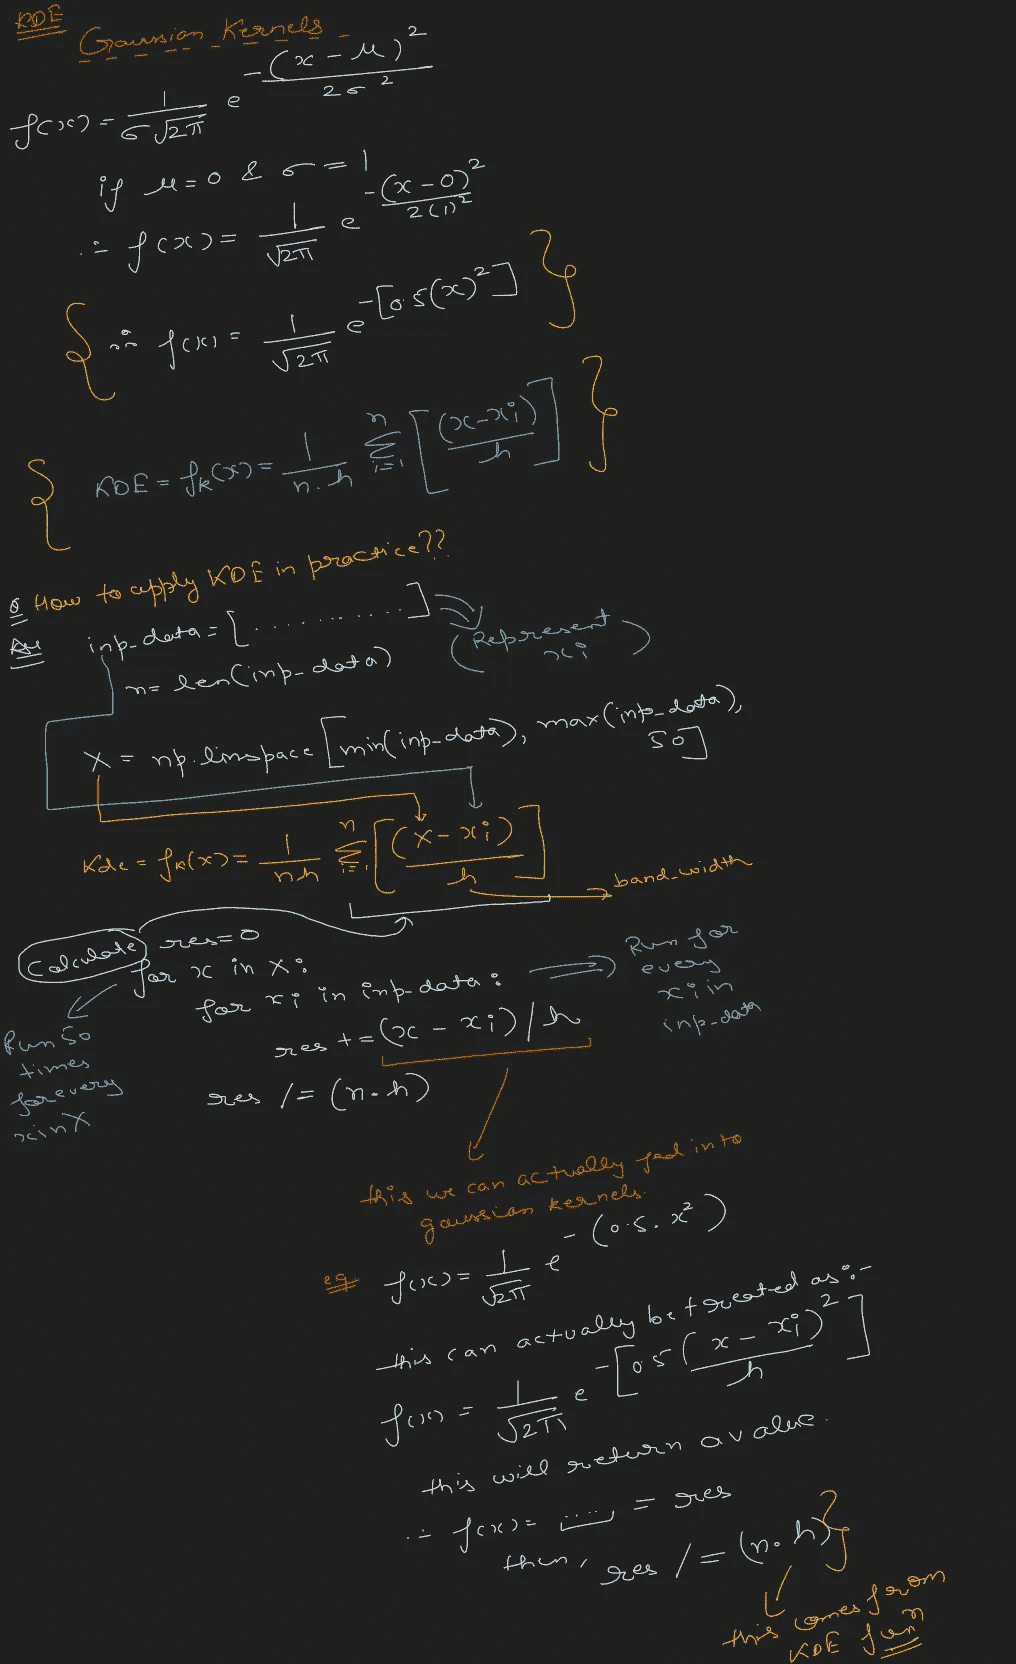 KDE
Gaussian Kernels
f(x) = 1/(σ√2π) e^(-(x-μ)²/2σ²)
if μ=0 & σ=1
∴ f(x) = 1/√2π e^(-(x-0)²/2(1)²)
{ ∴ f(x) = 1/√2π e^(-[0.5(x)²]) }
{ KDE = fk(x) = 1/(n.h) Σ_{i=1}^{n} [(x-xi)/h] }
Q How to apply KDE in practice??
Ans inp-data = [...........] ⇒ (Represent xi)
n = len(inp-data)
X = np.linspace [min(inp-data), max(inp-data), 50]
Kde = fk(x) = 1/(nh) Σ_{i=1}^{n} [(X-xi)/h] → band_width
Calculate res=0
for x in X:
for xi in inp-data: ⇒ Run for every xi in inp-data
Run 50 times for every x in X
res += (x - xi)/h
res /= (n.h)
this we can actually fed into
gaussian kernels.
eg f(x) = 1/√2π e^(-(0.5.x²))
this can actually be treated as:-
f(x) = 1/√2π e^(-[0.5((x-xi)/h)²])
this will return a value.
∴ f(x) = ..... = res
then, res /= (n.h) }
this comes from
KDE funⁿ